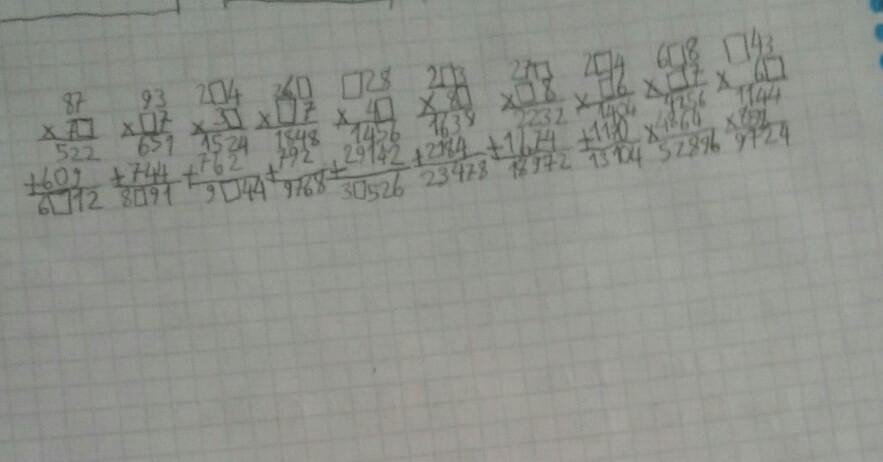 87 93 2□4 26□ □28 2□3 27□ 2□4 6□8 □43
x 7□ x □7 x 3□ x □7 x 4□ x 8□ x □8 x □6 x □7 x 6□
522 651 1524 1848 1456 1638 2232 1404 4256 1144
+609 +744 +762 +792 +29142 +2184 +1674 +1170 x4864 x858
6□12 8□91 9□44 9768 30526 23478 18972 13104 52896 9724